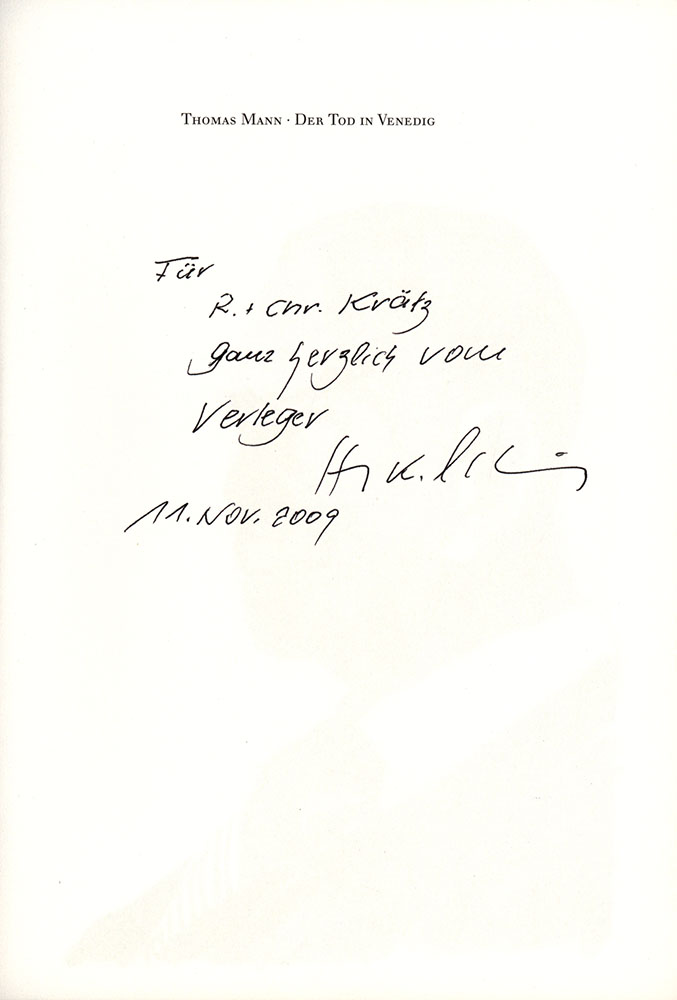 Thomas Mann · Der Tod in Venedig
Für
R. + Chr. Krätz
ganz herzlich vom
Verleger
K.
11. Nov. 2009